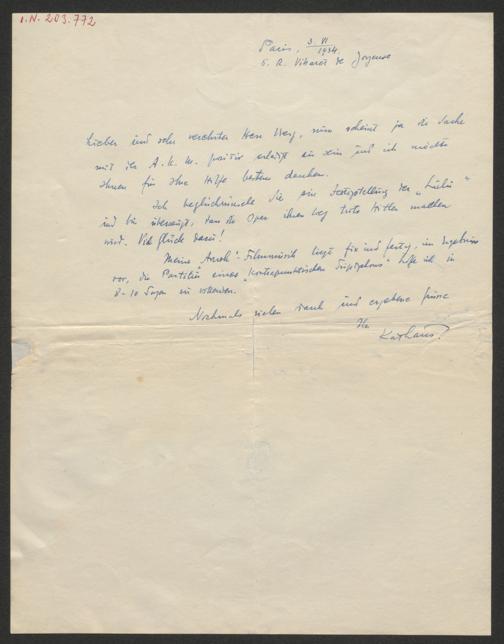 I.N. 203.772
Paris, 3. VI 1934.
6. R. Viharol de Joyeuse
Lieber und sehr verehrter Herr Berg, nun scheint ja die Sache
mit der A.K.M. positiv erledigt zu sein und ich möchte
Ihnen für Ihre Hilfe bestens danken.
Ich beglückwünsche Sie zur Fertigstellung der „Lulu"
und bin überzeugt, dass die Oper ihren Weg trotz Hitler machen
wird. Viel Glück dazu!
Meine Filmmusik liegt fix und fertig, im
vor, die Partitur eines hoffe ich in
8-10 Tagen zu vollenden.
Nochmals vielen Dank und ergebene Grüsse
Ihr